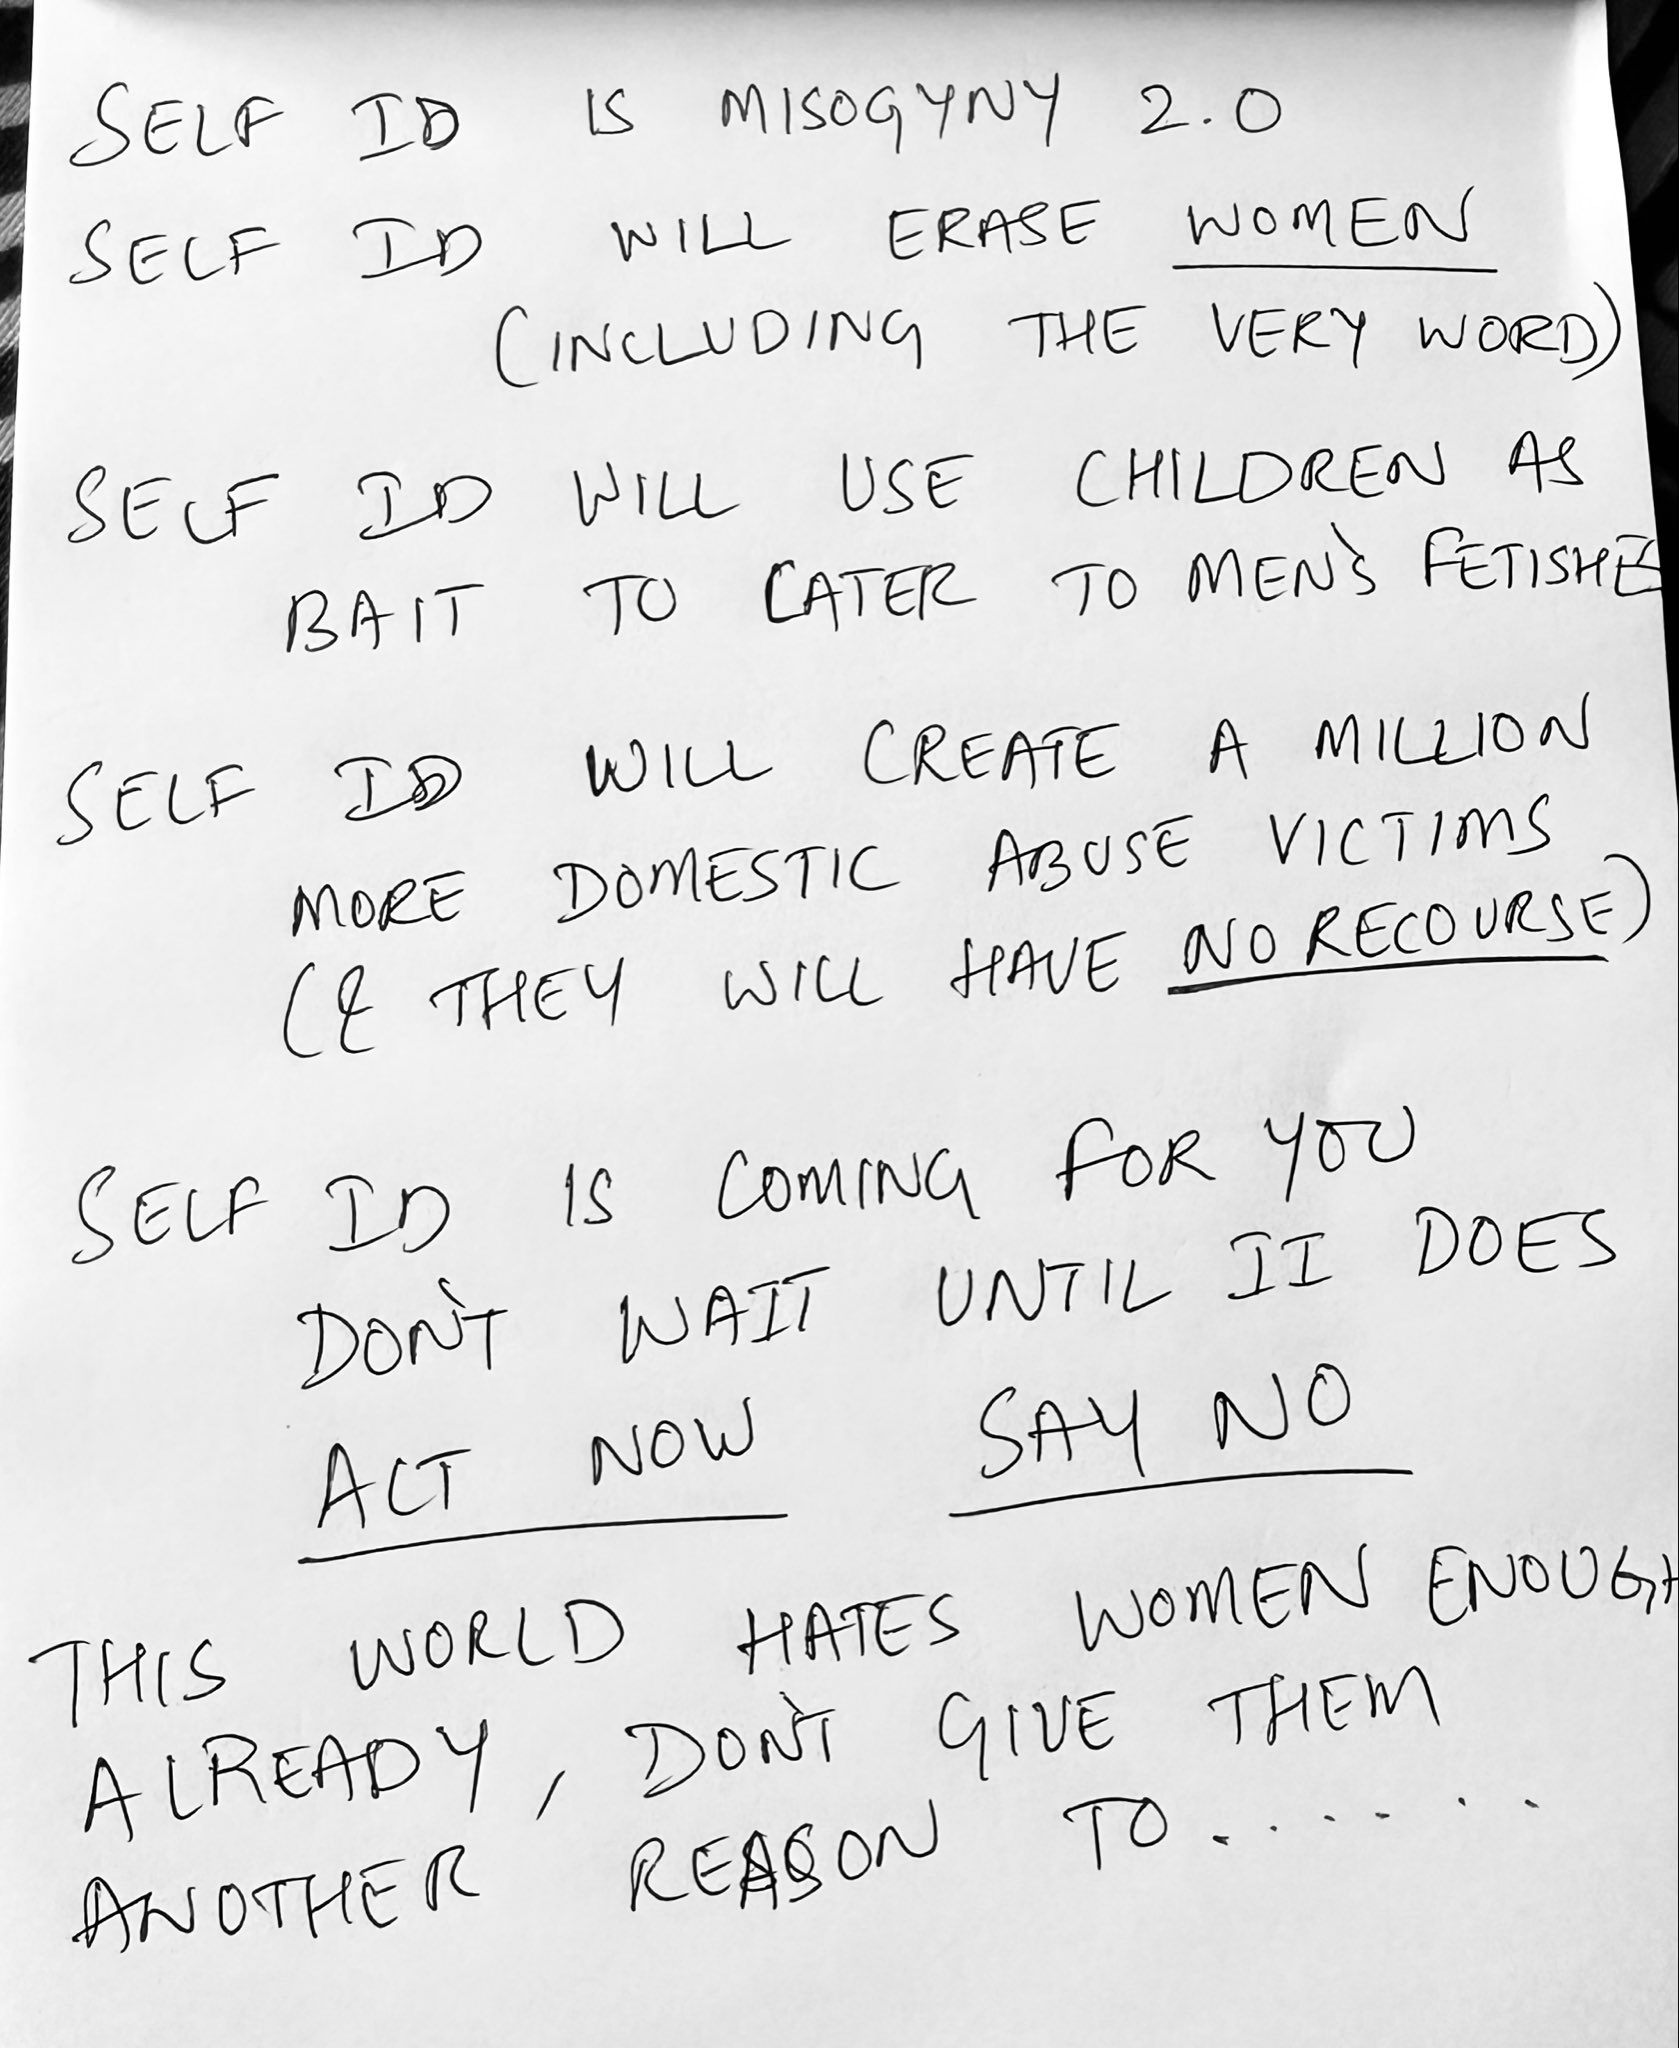 SELF ID IS MISOGYNY 2.0
SELF ID WILL ERASE WOMEN
(INCLUDING THE VERY WORD)
SELF ID WILL USE CHILDREN AS
BAIT TO CATER TO MEN'S FETISHES
SELF ID WILL CREATE A MILLION
MORE DOMESTIC ABUSE VICTIMS
(& THEY WILL HAVE NO RECOURSE)
SELF ID IS COMING FOR YOU
DON'T WAIT UNTIL IT DOES
ACT NOW SAY NO
THIS WORLD HATES WOMEN ENOUGH
ALREADY, DON'T GIVE THEM
ANOTHER REASON TO.......